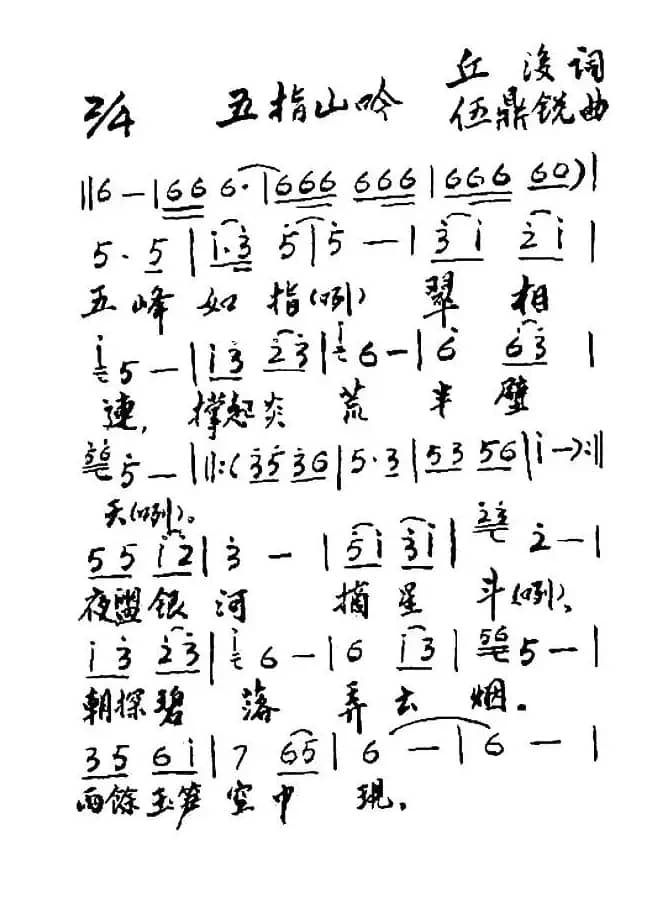 2/4 五指山吟 丘濬词
伍鼎铣曲
‖6 — | 66 6· | 666 666 | 666 60) |
5· 5 | i·3 5 | 5 — | 3 i 2 i |
五峰如指(咧) 翠相
i 5 — | i 3 23 | i 6 — | 6 63 |
連,撐起炎荒半壁
56 5 — | ‖:(35 36 | 5·3 | 53 56 | i —):‖
天(咧)。
55 i2 | 3 — | 5i 3i | 23 2 — |
夜盥银河摘星斗(咧),
i 3 23 | i 6 — | 6 i3 | 56 5 — |
朝探碧落弄云烟。
35 6i | 7 65 | 6 — | 6 — |
雨餘玉笋空中現,